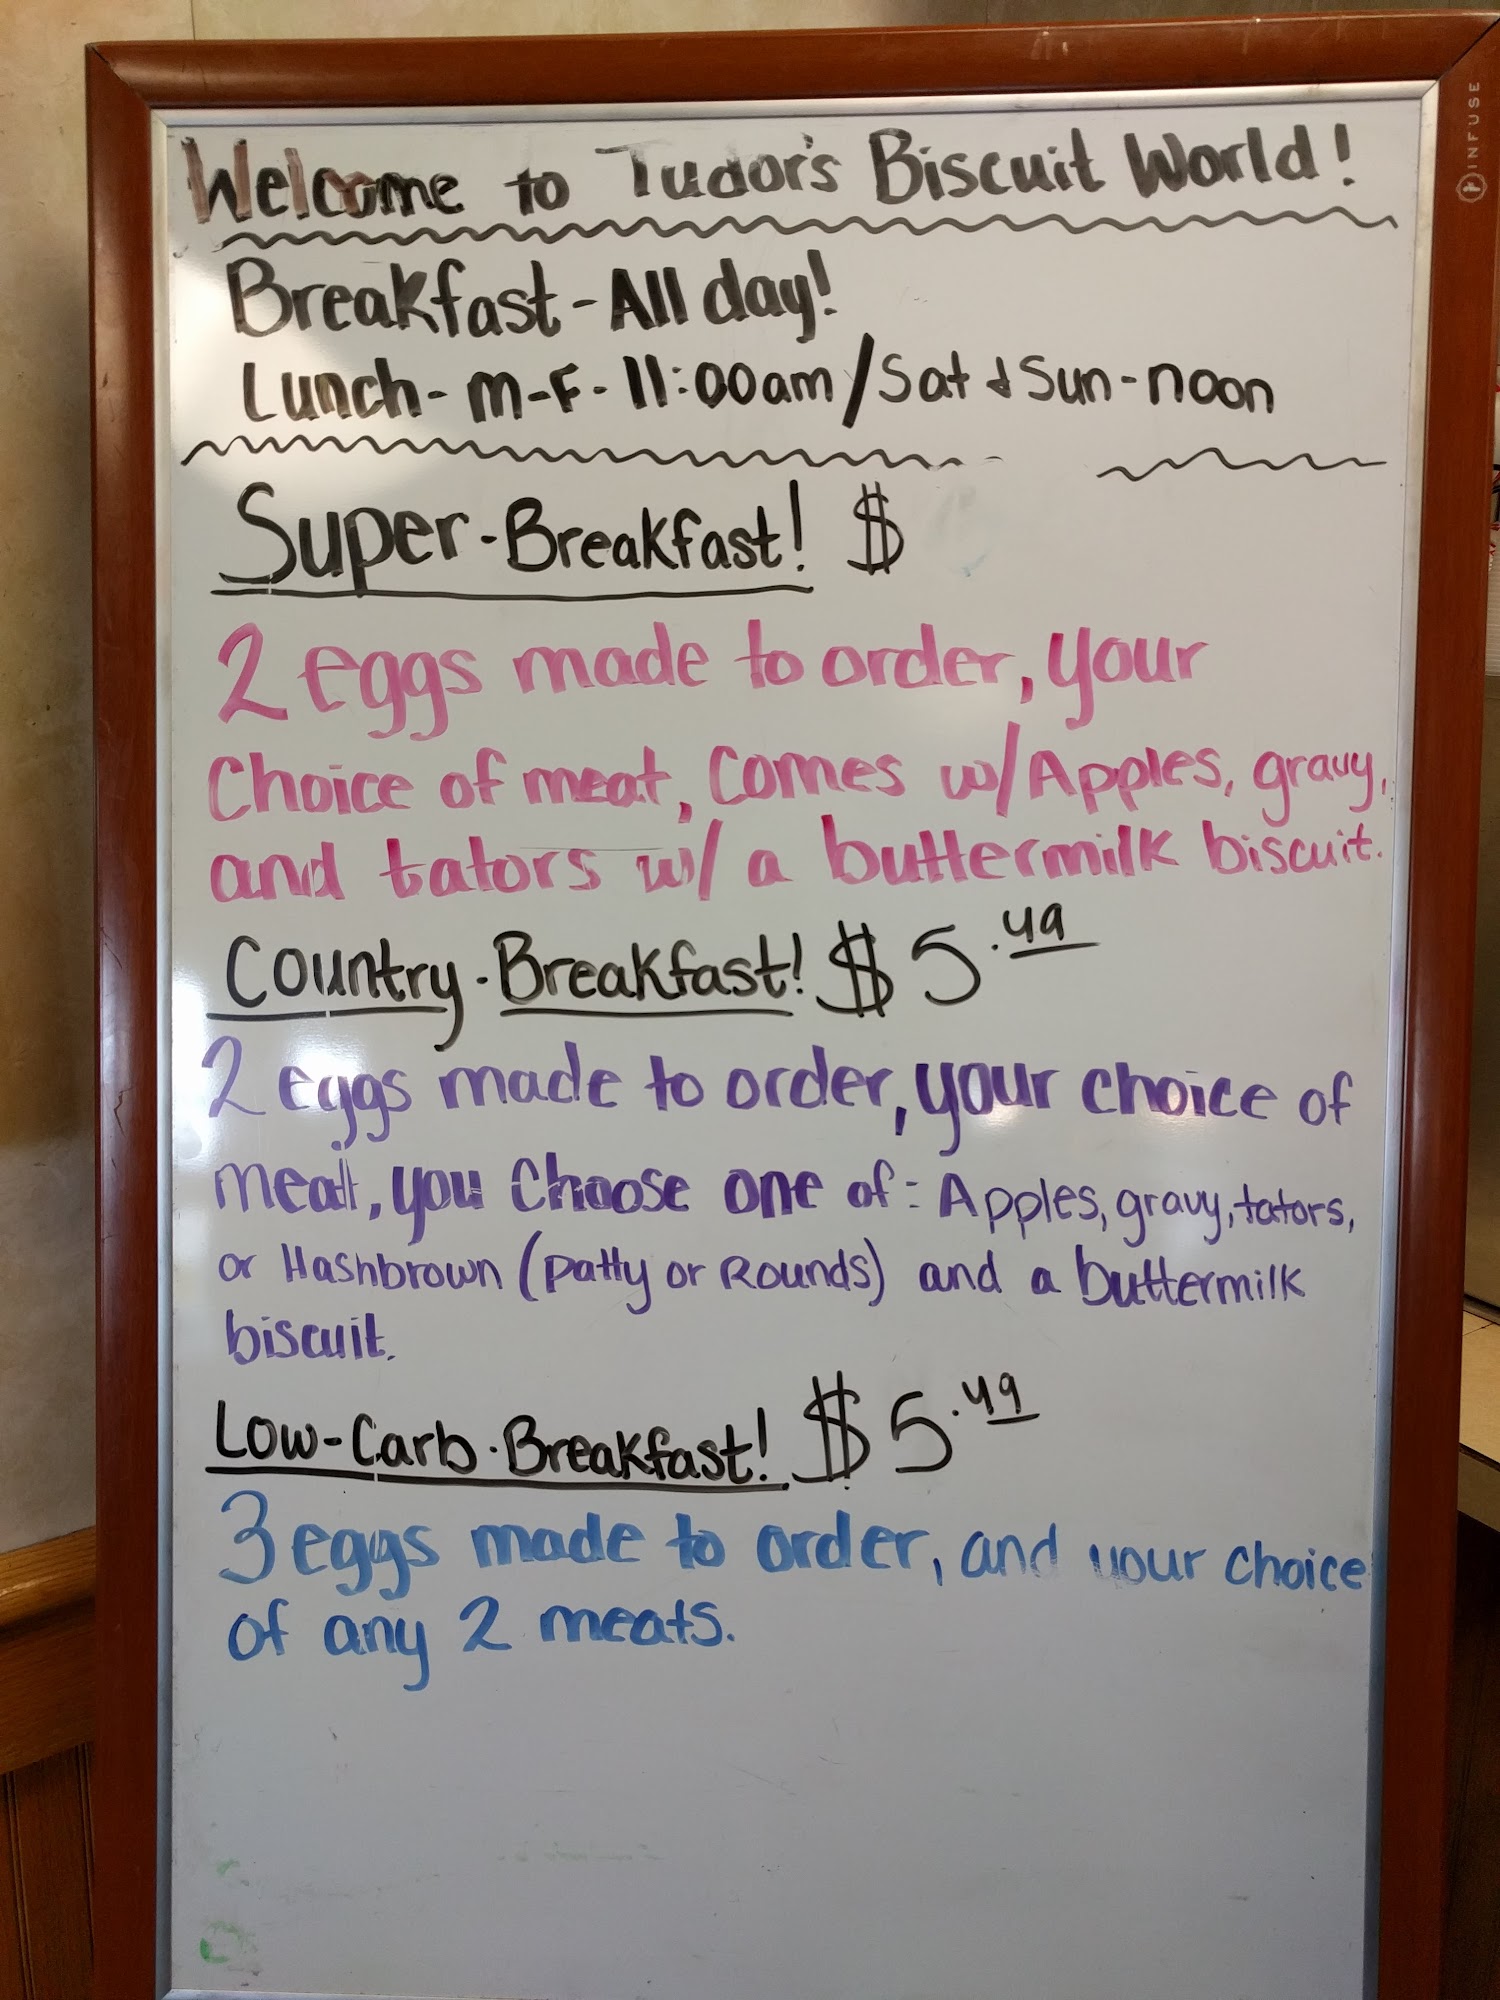 Welcome to Tudor's Biscuit World!
Breakfast - All day!
Lunch - M-F - 11:00am / Sat & Sun - noon
Super - Breakfast! $
2 eggs made to order, your
Choice of meat, Comes w/ Apples, gravy,
and tators w/ a buttermilk biscuit.
Country - Breakfast! $5.49
2 eggs made to order, your choice of
meat, you Choose one of: Apples, gravy, tators,
or Hashbrown (patty or Rounds) and a buttermilk
biscuit.
Low-Carb - Breakfast! $5.49
3 eggs made to order, and your choice
of any 2 meats.
INFUSE